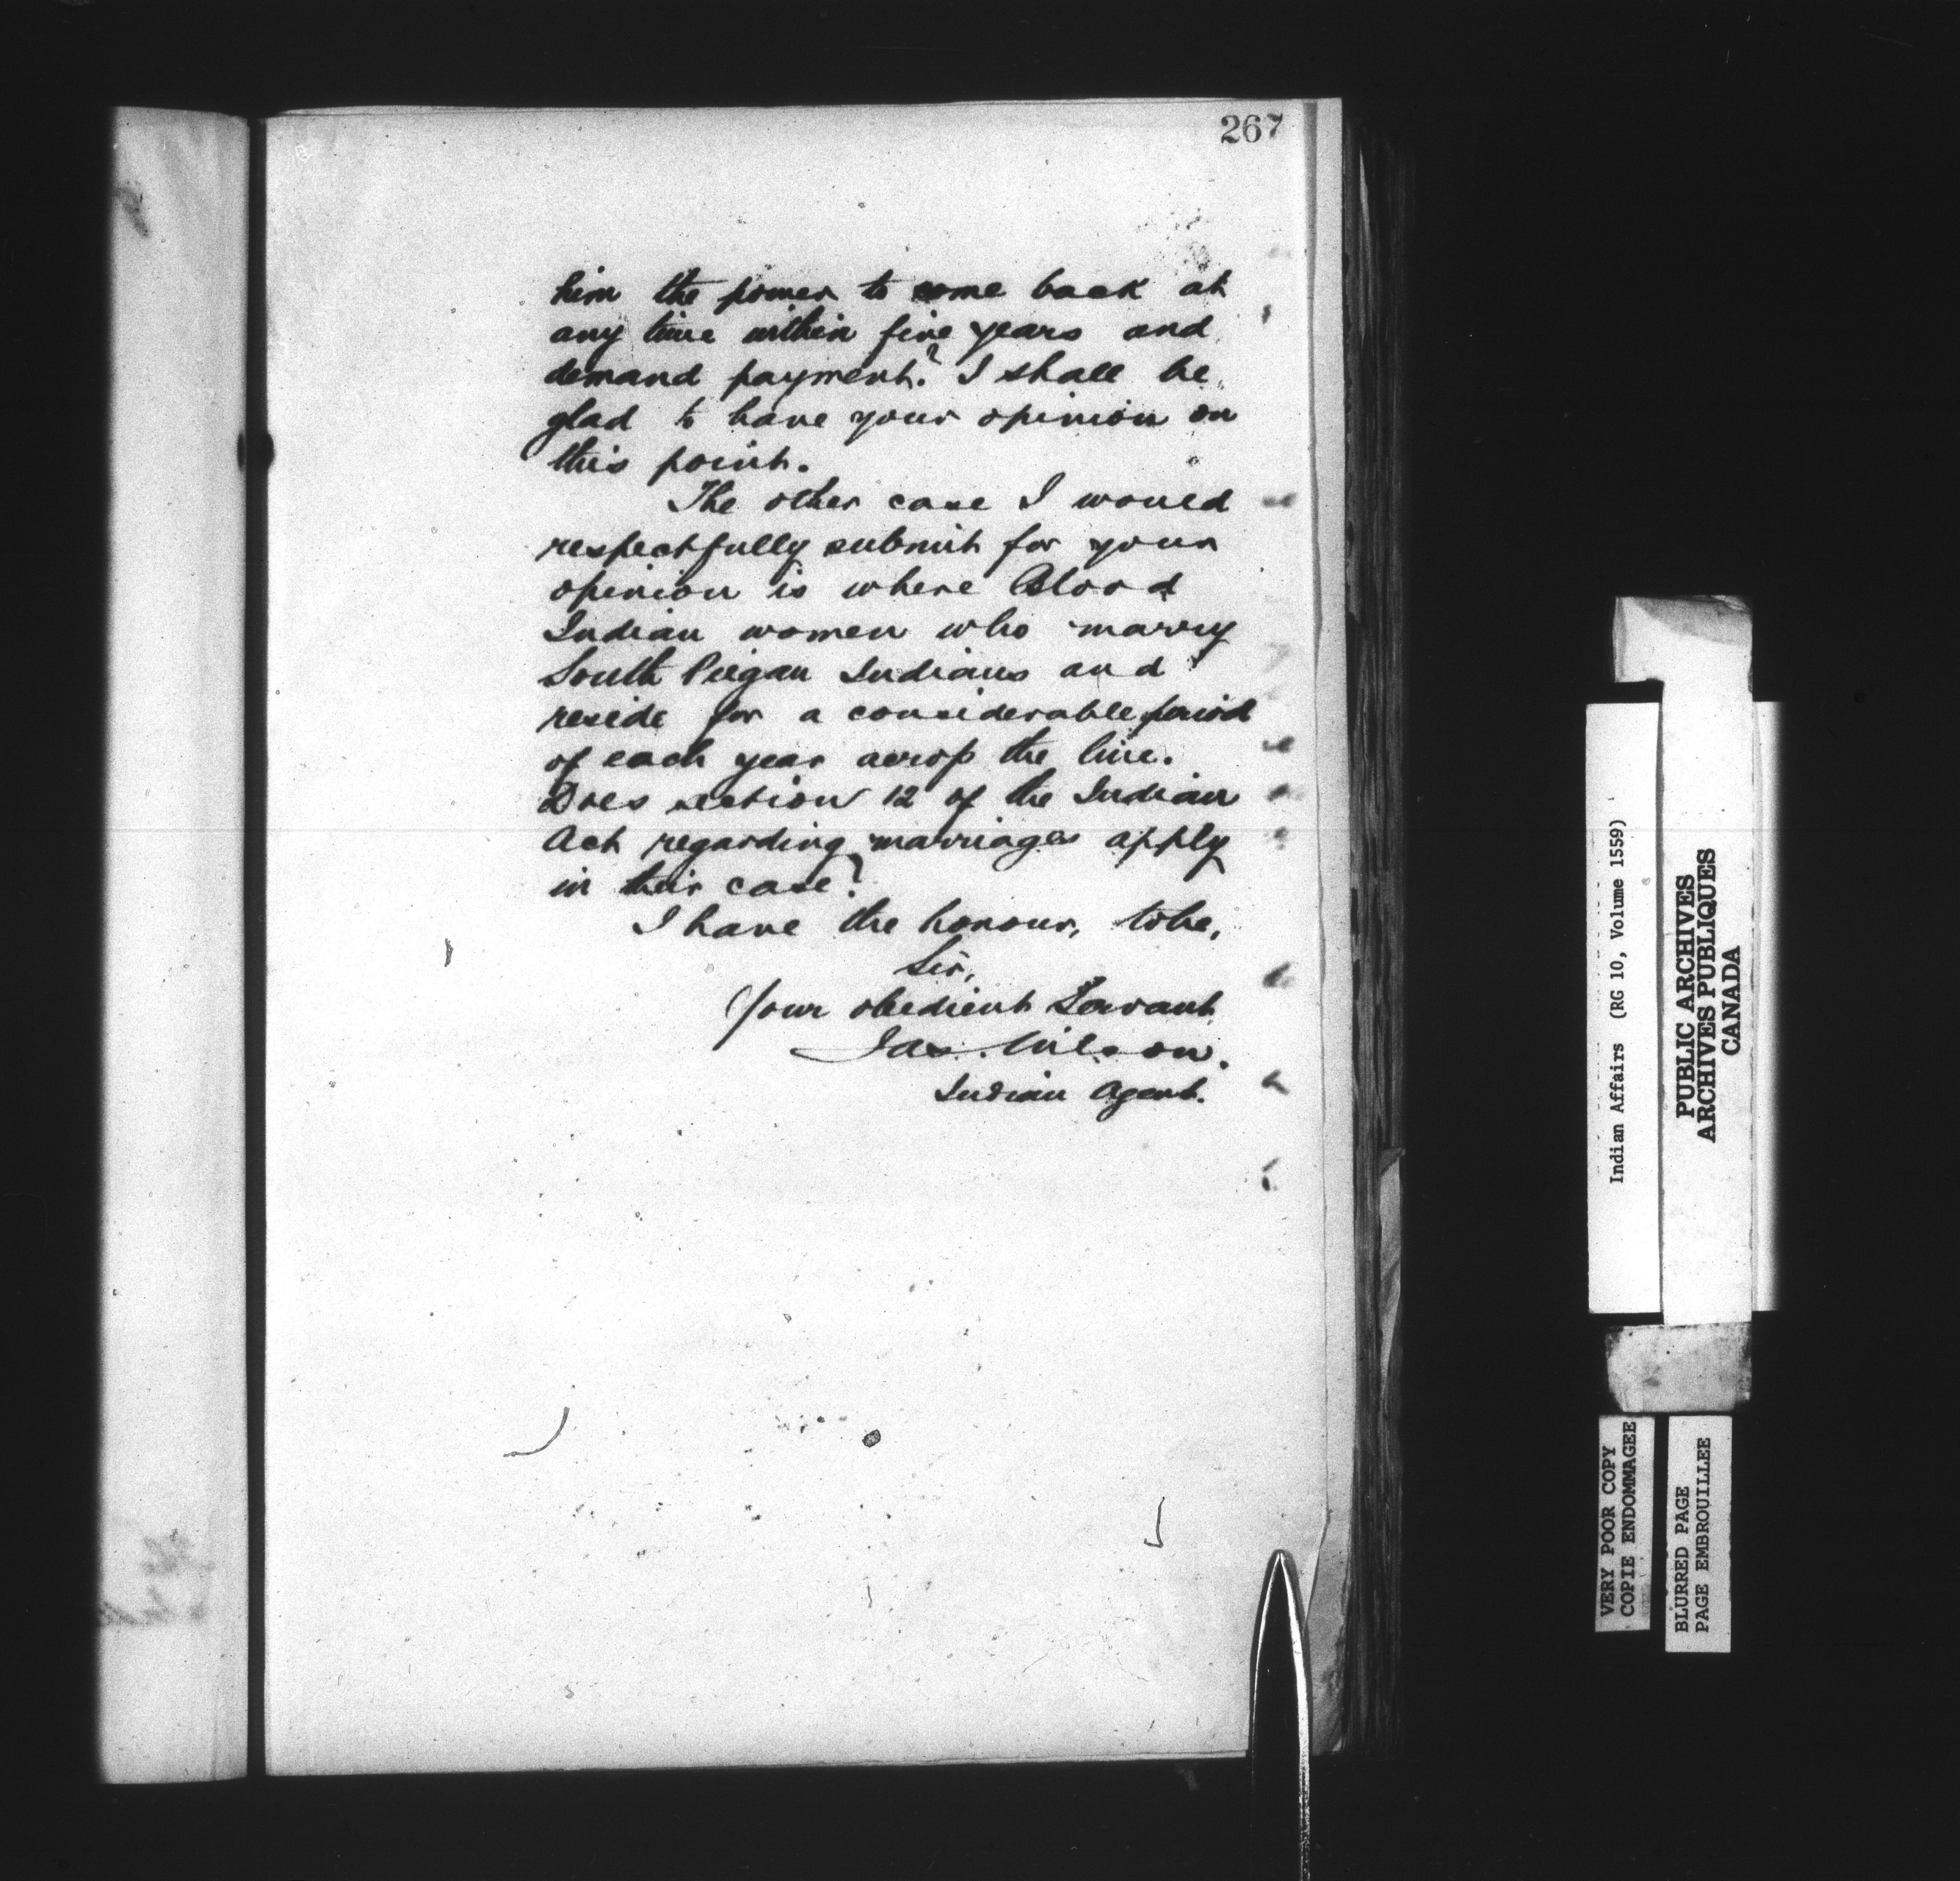 267
him the power to come back at
any time within five years and
demand payment? I shall be
glad to have your opinion on
this point.
The other case I would
respectfully submit for your
opinion is where Blood
Indian women who marry
South Piegan Indians and
reside for a considerable period
of each year across the line.
Does section 12 of the Indian
Act regarding marriages apply
in their case?
I have the honour, to be,
Sir,
Your obedient Servant
Jas. Wilson.
Indian Agent.
Indian Affairs (RG 10, Volume 1559)
PUBLIC ARCHIVES
ARCHIVES PUBLIQUES
CANADA
VERY POOR COPY
COPIE ENDOMMAGEE
BLURRED PAGE
PAGE EMBROUILLEE